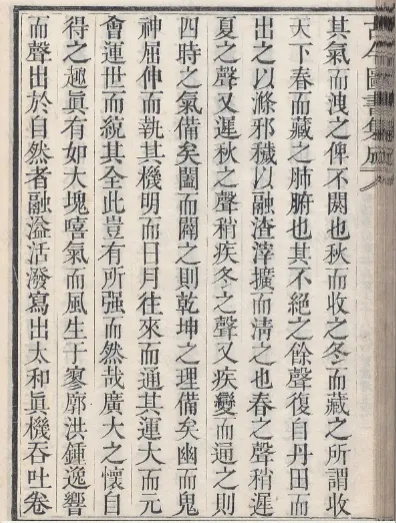 古今圖書集成
其氣而洩之俾不閼也秋而收之冬而藏之所謂收
天下春而藏之肺腑也其不絕之餘聲復自丹田而
出之以滌邪穢以融渣滓擴而清之也春之聲稍遲
夏之聲又遲秋之聲稍疾冬之聲又疾變而通之則
四時之氣備矣闔而闢之則乾坤之理備矣幽而鬼
神屈伸而執其機明而日月往來而通其運大而元
會運世而統其全此豈有所强而然哉廣大之懷自
得之趣眞有如大塊噫氣而風生于寥廓洪鍾逸響
而聲出於自然者融溢活潑寫出太和眞機吞吐卷